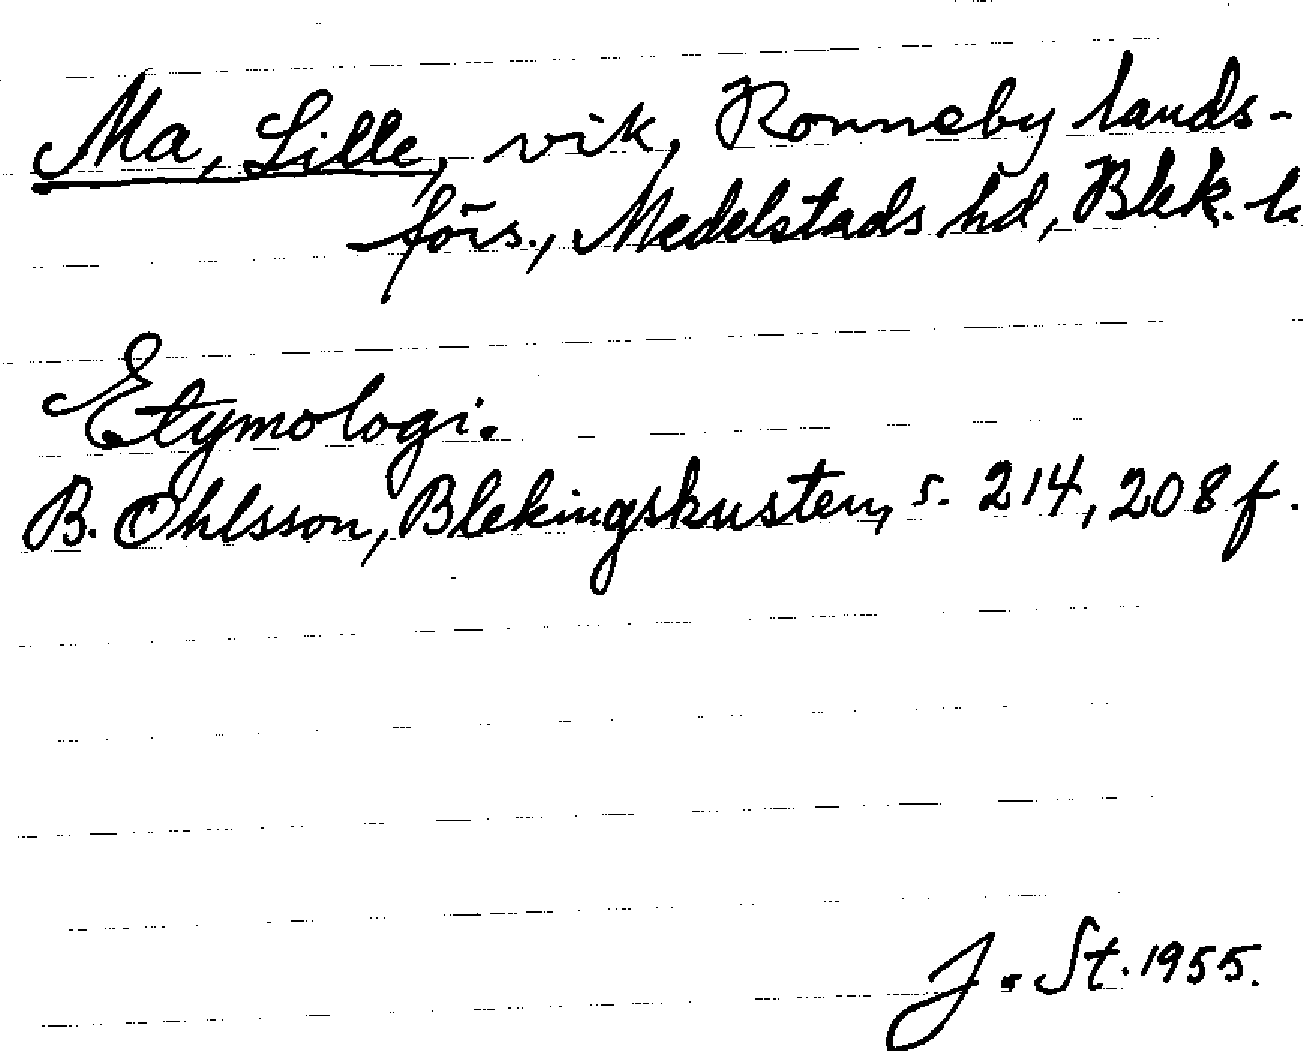 Ma, Lille, vik, Ronneby lands-
förs., Medelstads hd, Blek. l.
Etymologi.
B. Ohlsson, Blekingskusten, s. 214, 208 f.
J. St. 1955.